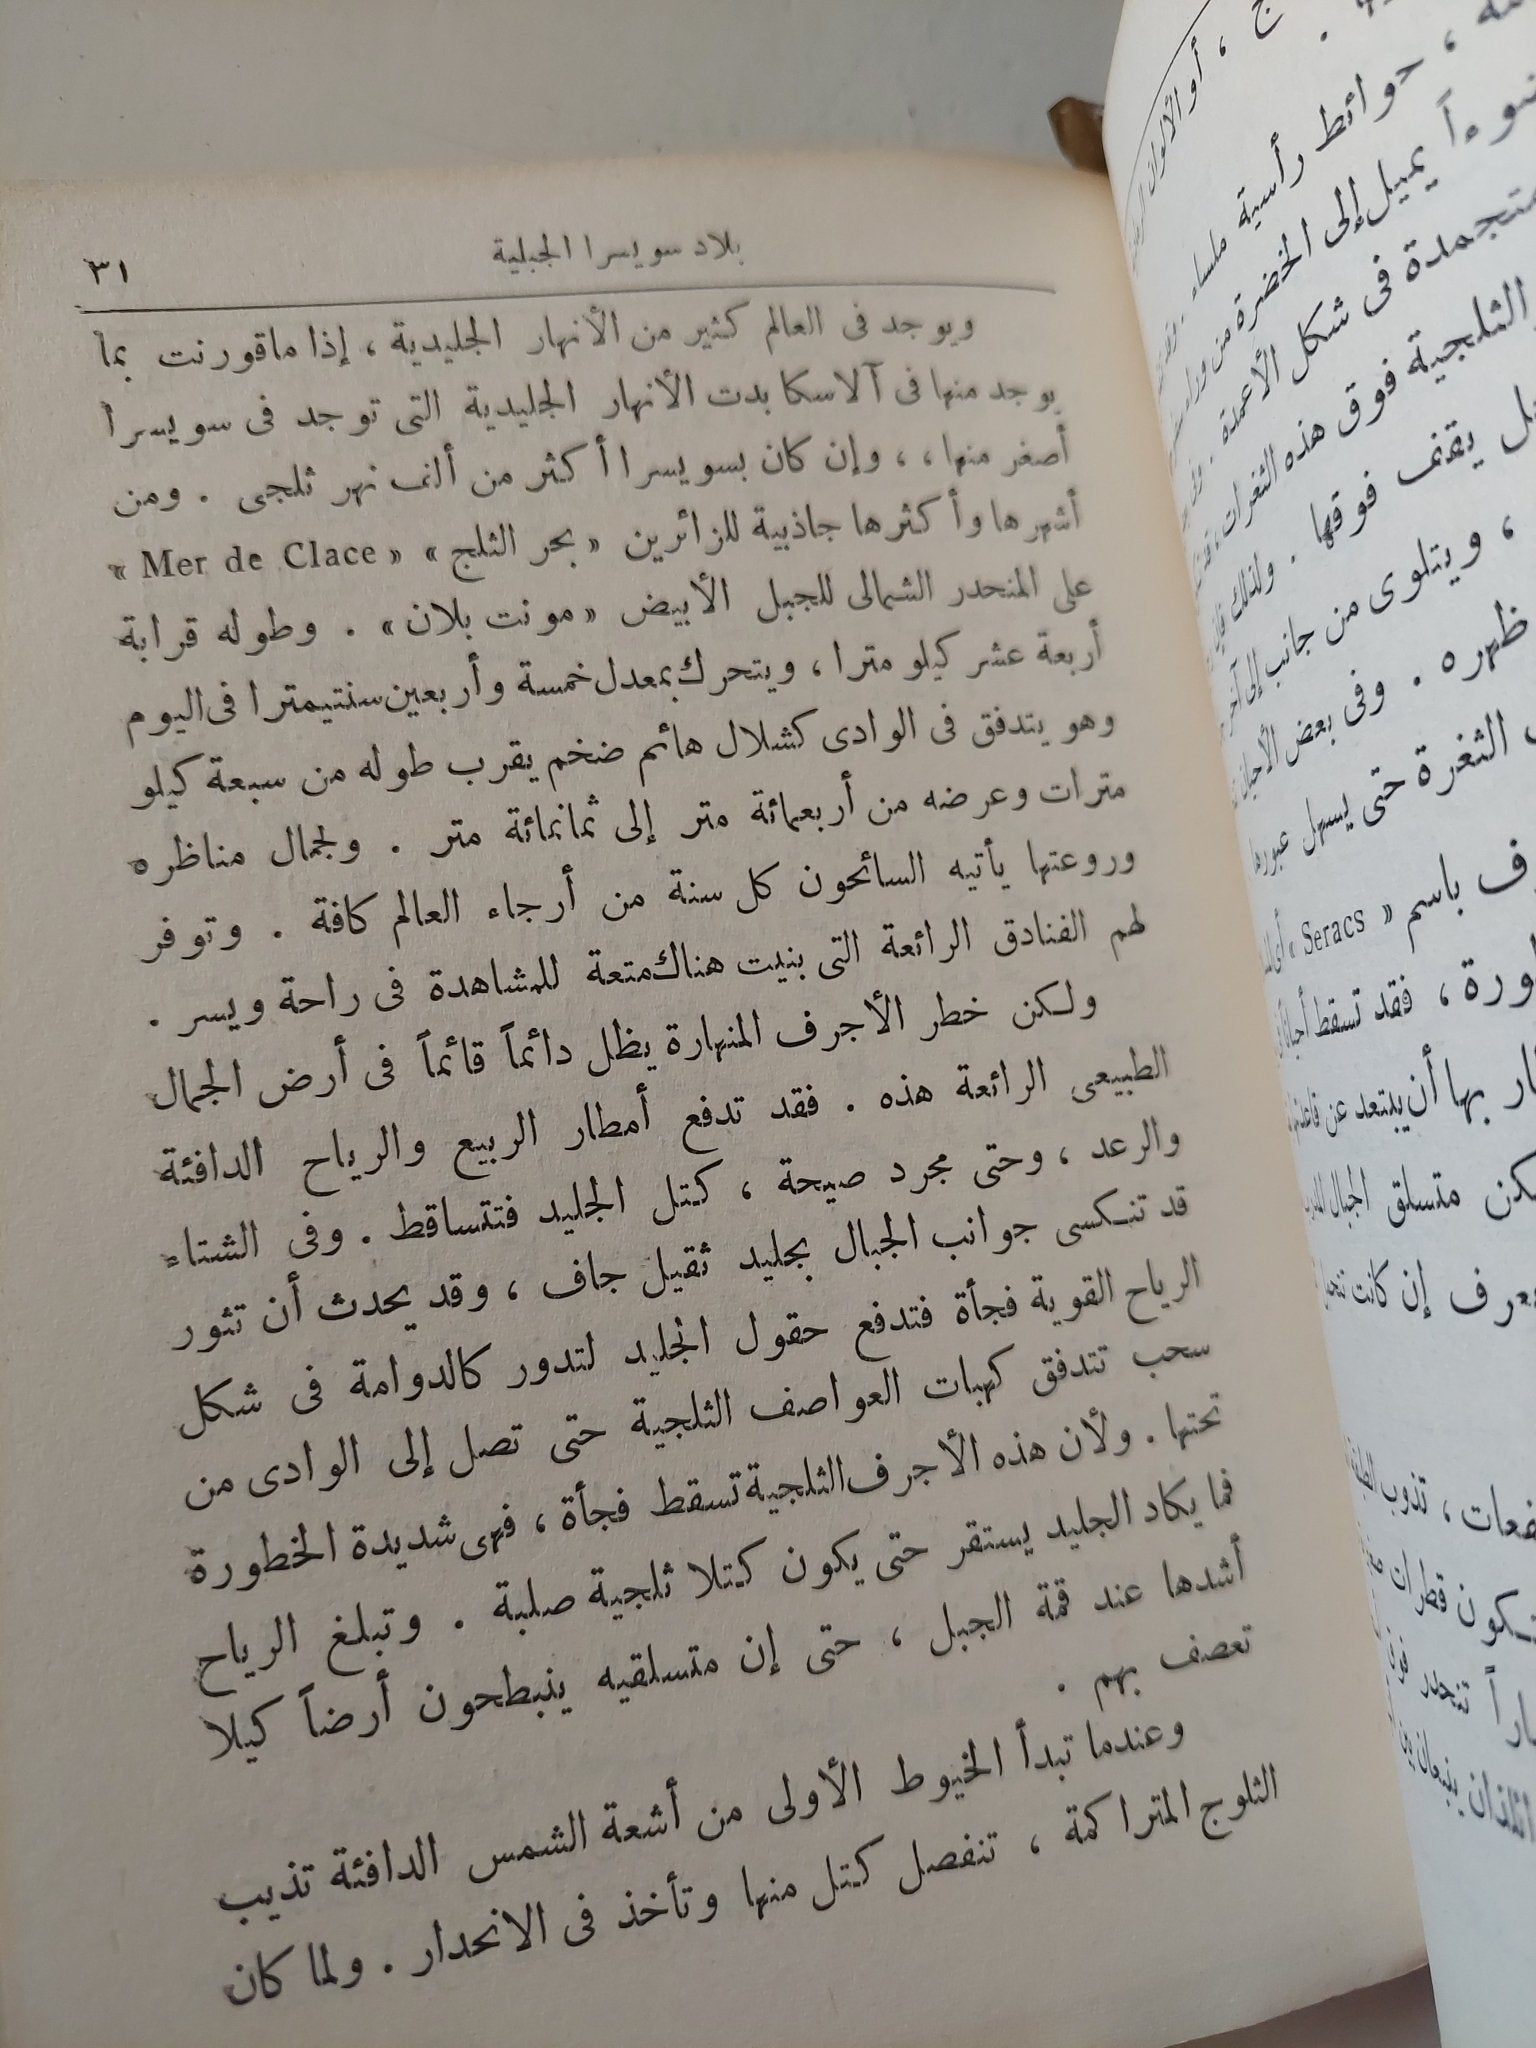 بلاد سويسرا الجبلية ٣١
ويوجد فى العالم كثير من الأنهار الجليدية ، إذا ماقورنت بما
يوجد منها فى آلاسكا بدت الأنهار الجليدية التى توجد فى سويسرا
أصغر منها ، ، وإن كان بسويسرا أكثر من ألف نهر ثلجى . ومن
أشهرها وأكثرها جاذبية للزائرين « بحر الثلج » « Mer de Clace »
على المنحدر الشمالى للجبل الأبيض « مونت بلان » . وطوله قرابة
أربعة عشر كيلو مترا ، ويتحرك بمعدل خمسة وأربعين سنتيمترا فى اليوم
وهو يتدفق فى الوادى كشلال هائم ضخم يقرب طوله من سبعة كيلو
مترات وعرضه من أربعمائة متر إلى ثمانمائة متر . ولجمال مناظره
وروعتها يأتيه السائحون كل سنة من أرجاء العالم كافة . وتوفر
لهم الفنادق الرائعة التى بنيت هناك متعة للمشاهدة فى راحة ويسر .
ولكن خطر الأجرف المنهارة يظل دائماً قائماً فى أرض الجمال
الطبيعى الرائعة هذه . فقد تدفع أمطار الربيع والرياح الدافئة
والرعد ، وحتى مجرد صيحة ، كتل الجليد فتتساقط . وفى الشتاء
قد تنكسى جوانب الجبال بجليد ثقيل جاف ، وقد يحدث أن تثور
الرياح القوية فجأة فتدفع حقول الجليد لتدور كالدوامة فى شكل
سحب تتدفق كهبات العواصف الثلجية حتى تصل إلى الوادى من
تحتها . ولأن هذه الأجرف الثلجية تسقط فجأة ، فهى شديدة الخطورة
فما يكاد الجليد يستقر حتى يكون كتلا ثلجية صلبة . وتبلغ الرياح
أشدها عند قمة الجبل ، حتى إن متسلقيه ينبطحون أرضاً كيلا
تعصف بهم .
وعندما تبدأ الخيوط الأولى من أشعة الشمس الدافئة تذيب
الثلوج المتراكمة ، تنفصل كتل منها وتأخذ فى الانحدار . ولما كان
، أو الألوان
، حوائط رأسية ملساء .
يميل إلى الخضرة من وراء
متجمدة فى شكل الأعمدة .
الثلجية فوق هذه الثغرات ،
يقف فوقها . ولذلك فإن
، ويتلوى من جانب إلى آخر
ظهره . وفى بعض الأحيان
الثغرة حتى يسهل عبورها
باسم « Seracs » أى
، فقد تسقط أحياناً
بها أن يبتعد عن
متسلق الجبال
إن كانت
، تذوب
قطرات
تنحدر
ينبعان